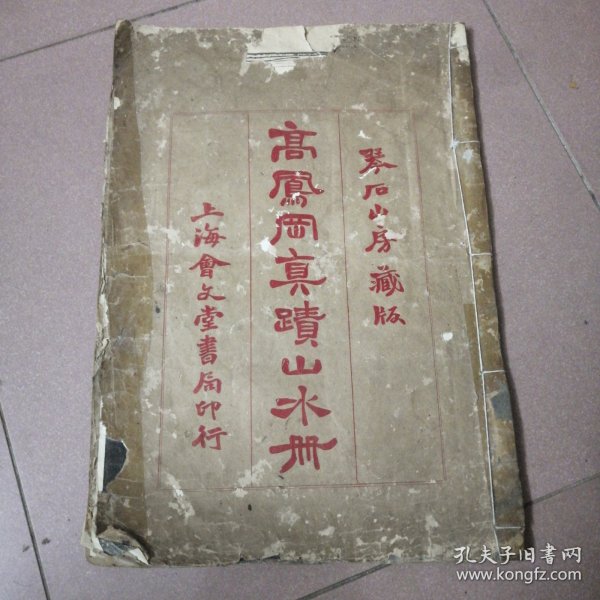 琴石山房藏版
高鳳岡真蹟山水冊
上海會文堂書局印行
孔夫子旧书网
www.kongfz.com